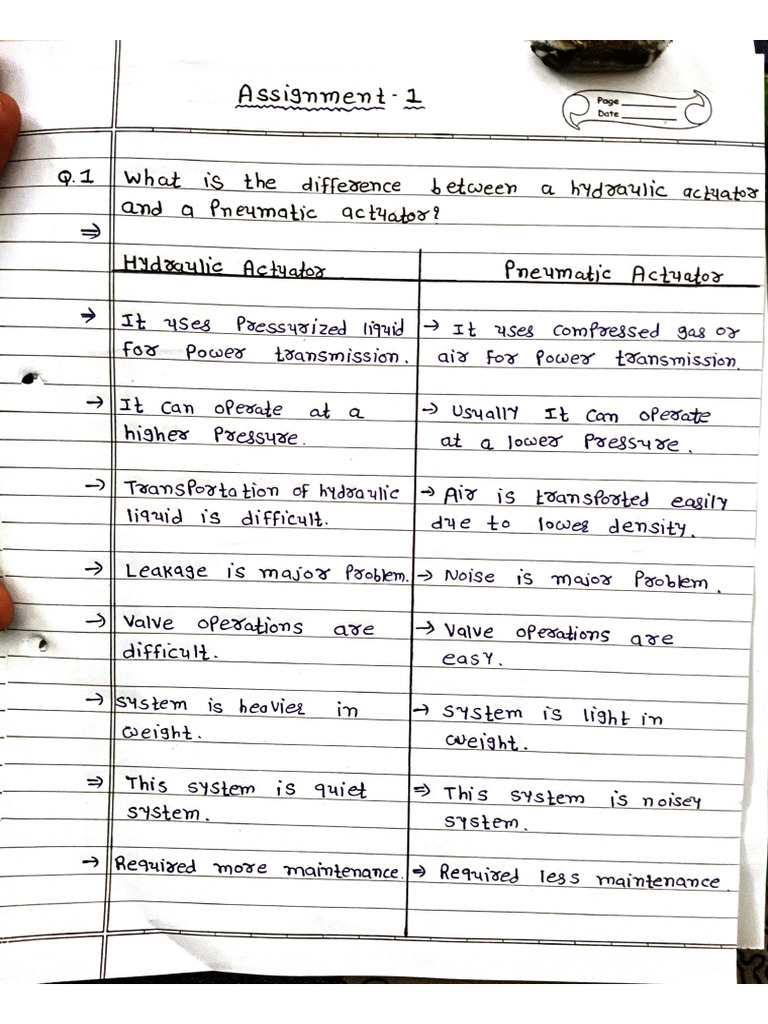 Assignment - 1
Page
Date
Q.1 What is the difference between a hydraulic actuator
and a Pneumatic actuator?
⇒
Hydraulic Actuator
Pneumatic Actuator
→ It uses Pressurized liquid
for Power transmission.
→ It uses compressed gas or
air for Power transmission.
→ It can operate at a
higher Pressure.
→ Usually It can operate
at a lower Pressure.
→ Transportation of hydraulic
liquid is difficult.
→ Air is transported easily
due to lower density.
→ Leakage is major Problem.
→ Noise is major Problem.
→ Valve operations are
difficult.
→ Valve operations are
easy.
→ System is heavier in
weight.
→ System is light in
weight.
⇒ This system is quiet
system.
⇒ This system is noisey
system.
→ Required more maintenance.
→ Required less maintenance.